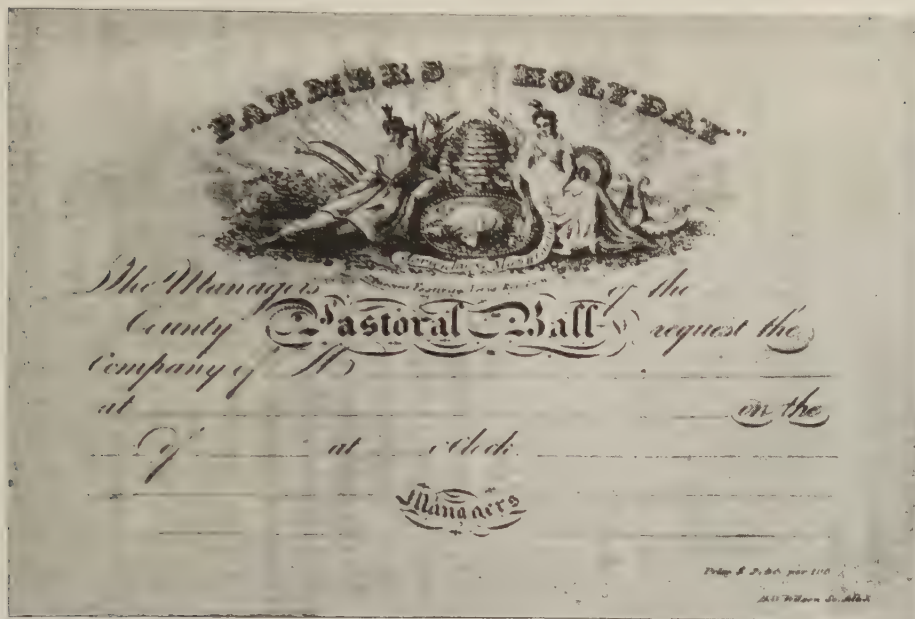 "FARMERS HOLYDAY"
The Managers of the
County Pastoral Ball request the
Company of M
at on the
of at oClock
Managers
Price $ per 100